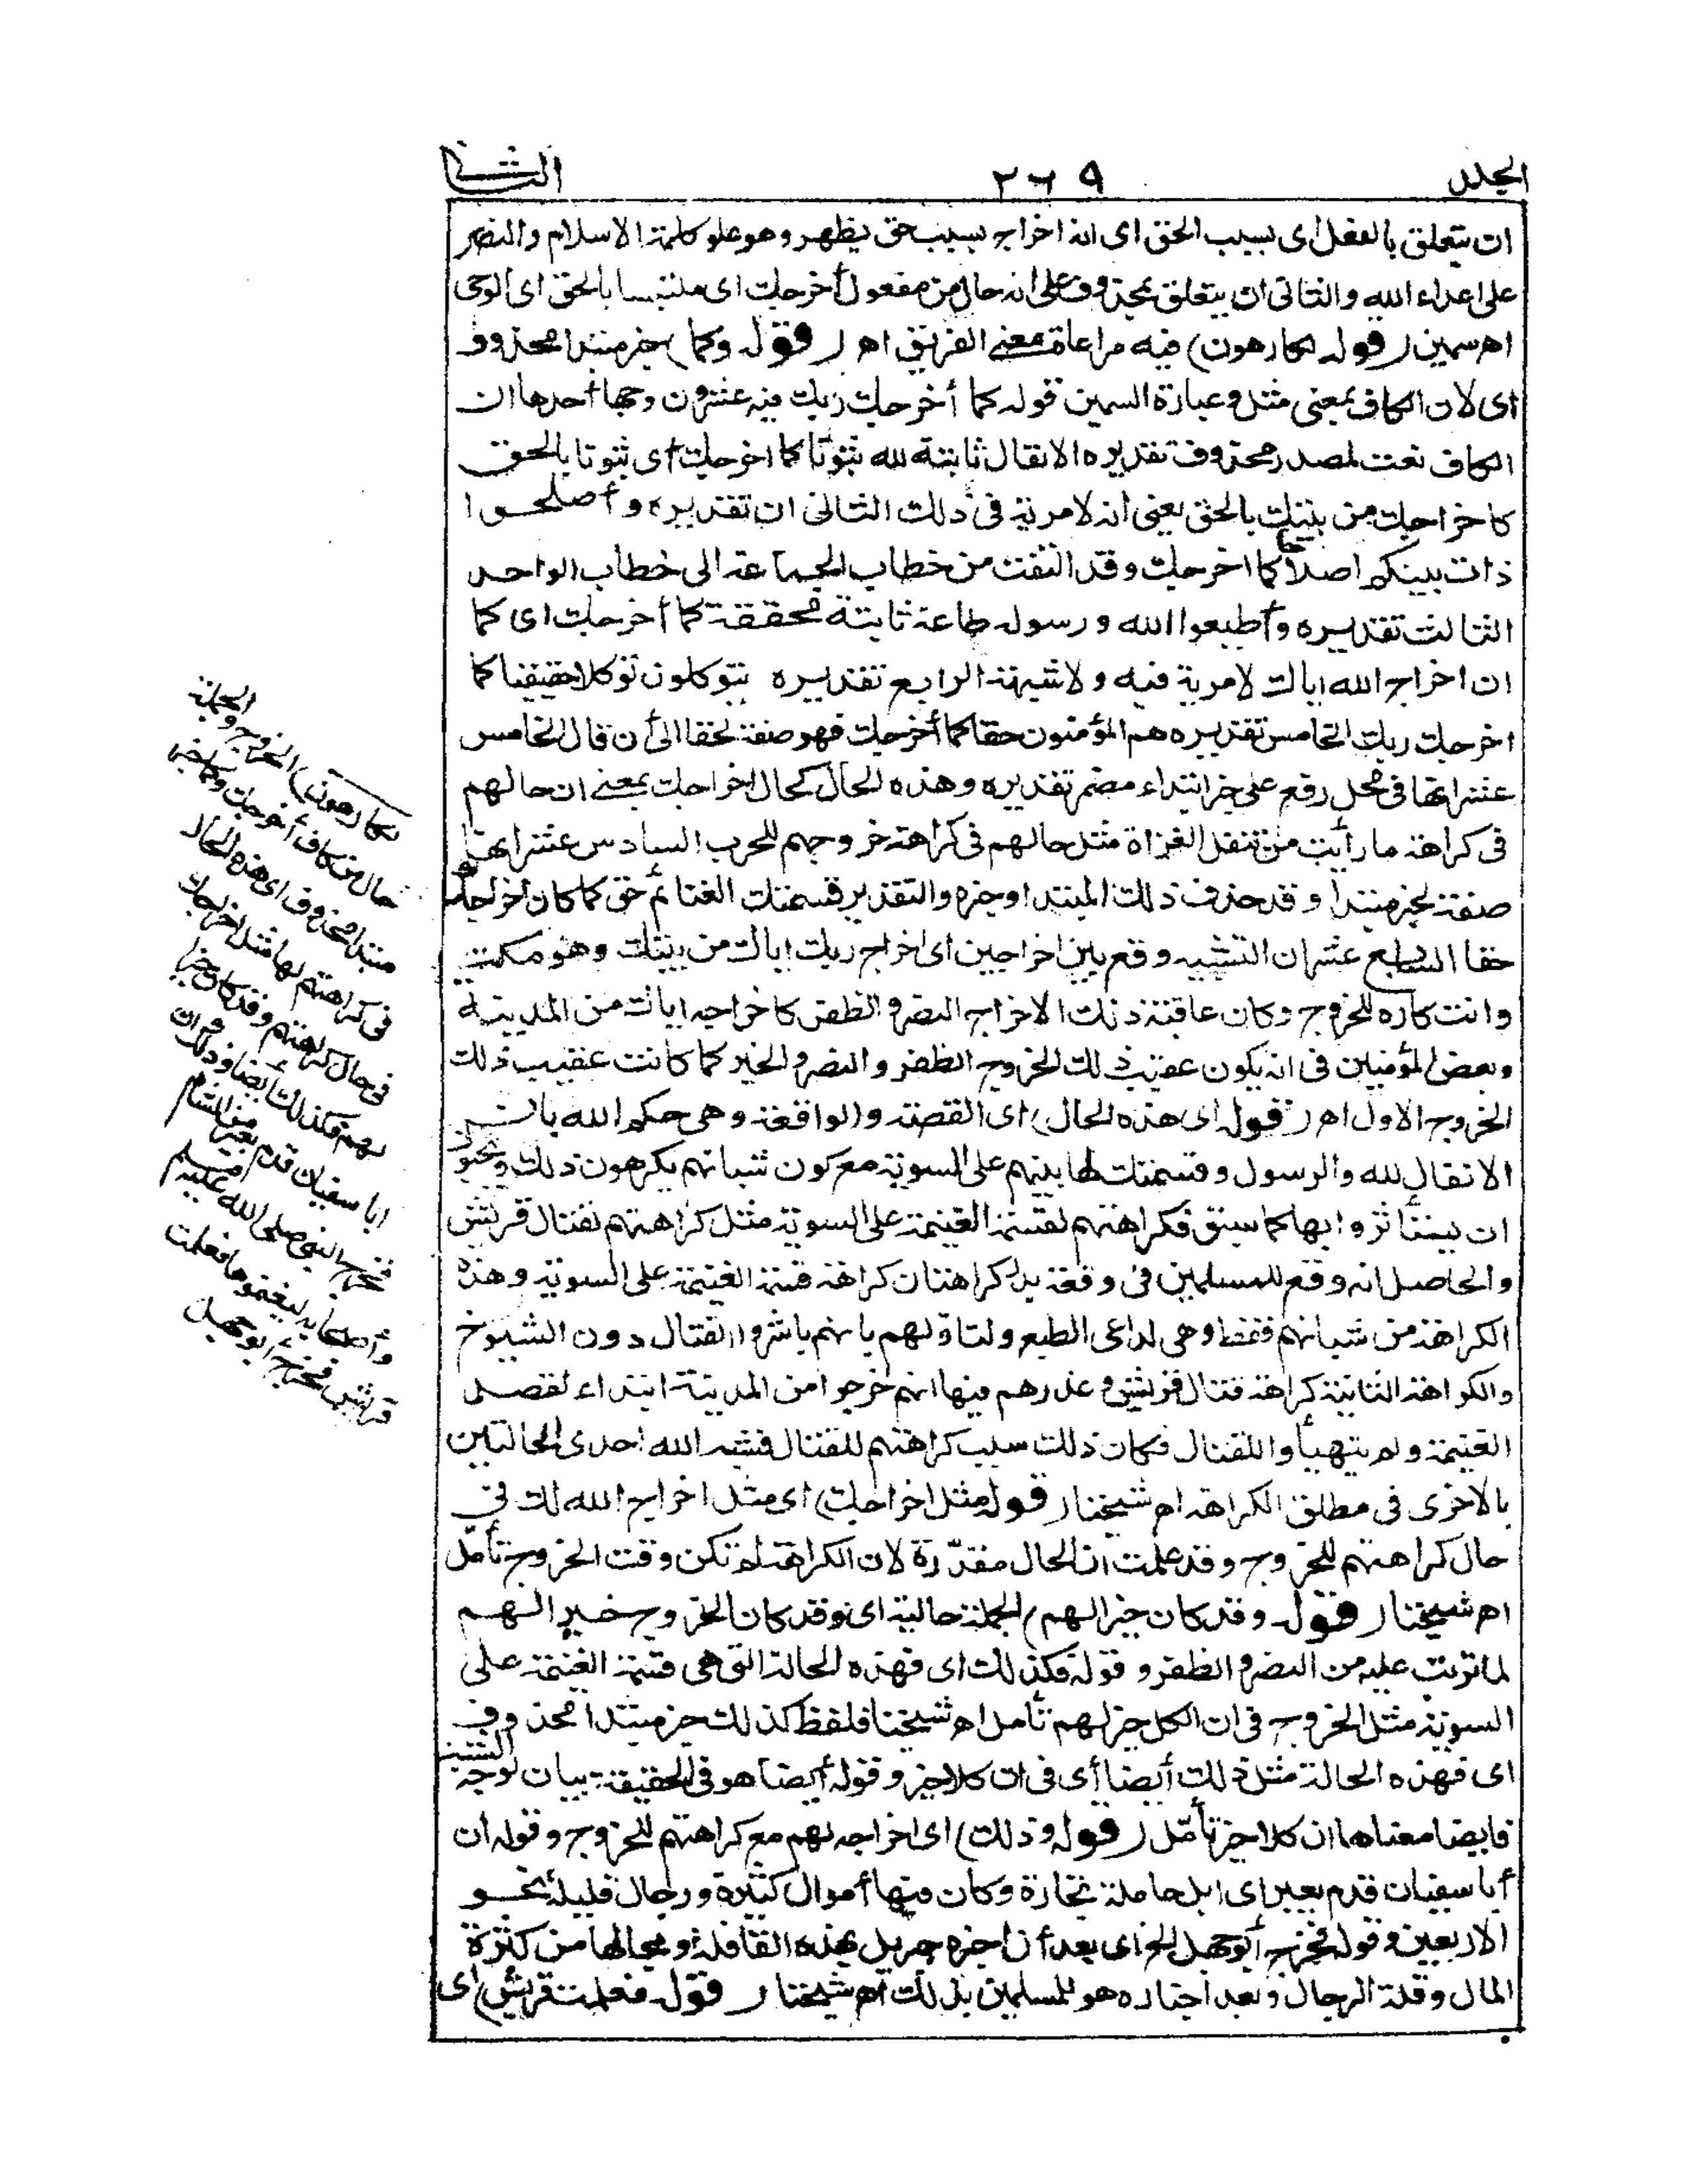 الجلد ٢٦٩ الثانى
ان يتعلق بالفعل اى بسبب الحق اى انه اخراج بسبب حق يظهر وهو علو كلمة الاسلام والنصر
على اعداء الله والثانى ان يتعلق بمحذوف على انه حال من مفعول أخرجك اى ملتبسا بالحق اى الوحى
اهـ سمين (قوله لكارهون) فيه مراعاة معنى الفريق اهـ (قوله وكما) خبر مبتدا محذوف
اى لان الكاف بمعنى مثل وعبارة السمين قوله كما أخرجك ربك فيه عشرون وجها أحدها ان
الكاف نعت لمصدر محذوف تقديره الانفال ثابتة لله ثبوتا كما اخرجك أى ثبوتا بالحق
كاخراجك من بيتك بالحق يعنى انه لامرية فى ذلك الثانى ان تقديره وأصلحوا
ذات بينكم اصلاحا كما اخرجك وقد التفت من خطاب الجماعة الى خطاب الواحد
الثالث تقديره وأطيعوا الله ورسوله طاعة ثابتة محققة كما أخرجك اى كما
ان اخراج الله اياك لامرية فيه ولا شبهة الرابع تقديره يتوكلون توكلا حقيقيا كما
اخرجك ربك الخامس تقديره هم المؤمنون حقا كما أخرجك فهو صفة لحقا الى أن قال الخامس
عشر انها فى محل رفع على خبر ابتداء مضمر تقديره وهذه الحال كحال اخراجك بمعنى ان حالهم
فى كراهة ما رأيت من تنفل الغزاة مثل حالهم فى كراهة خروجهم للحرب السادس عشر انها
صفة لخبر مبتدأ وقد حذف ذلك المبتدا وخبره والتقدير قسمتك الغنائم حق كما كان اخراجك
حقا السابع عشر ان التشبيه وقع بين اخراجين اى اخراج ربك اياك من بيتك وهو مكة
وانت كاره للخروج وكان عاقبة ذلك الاخراج النصر والظفر كاخراجه اياك من المدينة
وبعض المؤمنين فى انه يكون عقيب ذلك الخروج الظفر والنصر والخير كما كانت عقيب ذلك
الخروج الاول اهـ (قوله اى هذه الحال) اى القصة والواقعة وهى حكم الله بان
الانفال لله والرسول وقسمتك لها بينهم على السوية مع كون شبانهم يكرهون ذلك ويحبون
ان يستأثروا بها كما سبق فكراهتهم لقسمة الغنيمة على السوية مثل كراهتهم لقتال قريش
والحاصل انه وقع للمسلمين فى وقعة بدر كراهتان كراهة قسمة الغنيمة على السوية وهذه
الكراهة من شبانهم فقط وهى لداعى الطبع ولتاولهم بانهم باشروا القتال دون الشيوخ
والكراهة الثانية كراهة قتال قريش وعذرهم فيها انهم خرجوا من المدينة ابتداء لقصد
الغنيمة ولم يتهيأوا للقتال فكان ذلك سبب كراهتهم للقتال فشبه الله احدى الحالتين
بالاخرى فى مطلق الكراهة اهـ شيخنا (قوله مثل اخراجك) اى مثل اخراج الله لك فى
حال كراهتهم للخروج وقد علمت ان الحال مقدّرة لان الكراهة لم تكن وقت الخروج تأمّل
اهـ شيخنا (قوله وقد كان خيرا لهم) الجملة حالية اى وقد كان الخروج خيرا لهم
لما ترتب عليه من النصر والظفر وقوله فكذلك اى فهذه الحالة التى هى قسمة الغنيمة على
السوية مثل الخروج فى ان الكل خير لهم تأمل اهـ شيخنا فلفظ كذلك خبر مبتدأ محذوف
اى فهذه الحالة مثل ذلك أيضا أى فى ان كلا خير وقوله أيضا هو فى الحقيقة بيان لوجه الشبه
فايضا معناها ان كلا خير تأمّل (قوله وذلك) اى اخراجه بهم مع كراهتهم للخروج وقوله ان
أبا سفيان قدم بعير اى ابل حاملة تجارة وكان فيها أموال كثيرة ورجال قليلة نحو
الاربعين وقوله فخرج أبو جهل الخ اى بعد أن اخبره جبريل بهذه القافلة وبحالها من كثرة
المال وقلة الرجال وبعد اخباره هو للمسلمين بذلك اهـ شيخنا (قوله فعلمت قريش) اى
لكارهون) الخروج والجملة
حال من كاف أخرجك وكما خبر
مبتدا محذوف اى هذه الحال
فى كراهتهم لها مثل اخراجك
فى حال كراهتهم وقد كان خيرا
لهم فكذلك أيضا وذلك ان
ابا سفيان قدم بعير من الشام
فخرج النبى صلى الله عليه وسلم
وأصحابه ليغنموها فعلمت
قريش فخرج أبو جهل